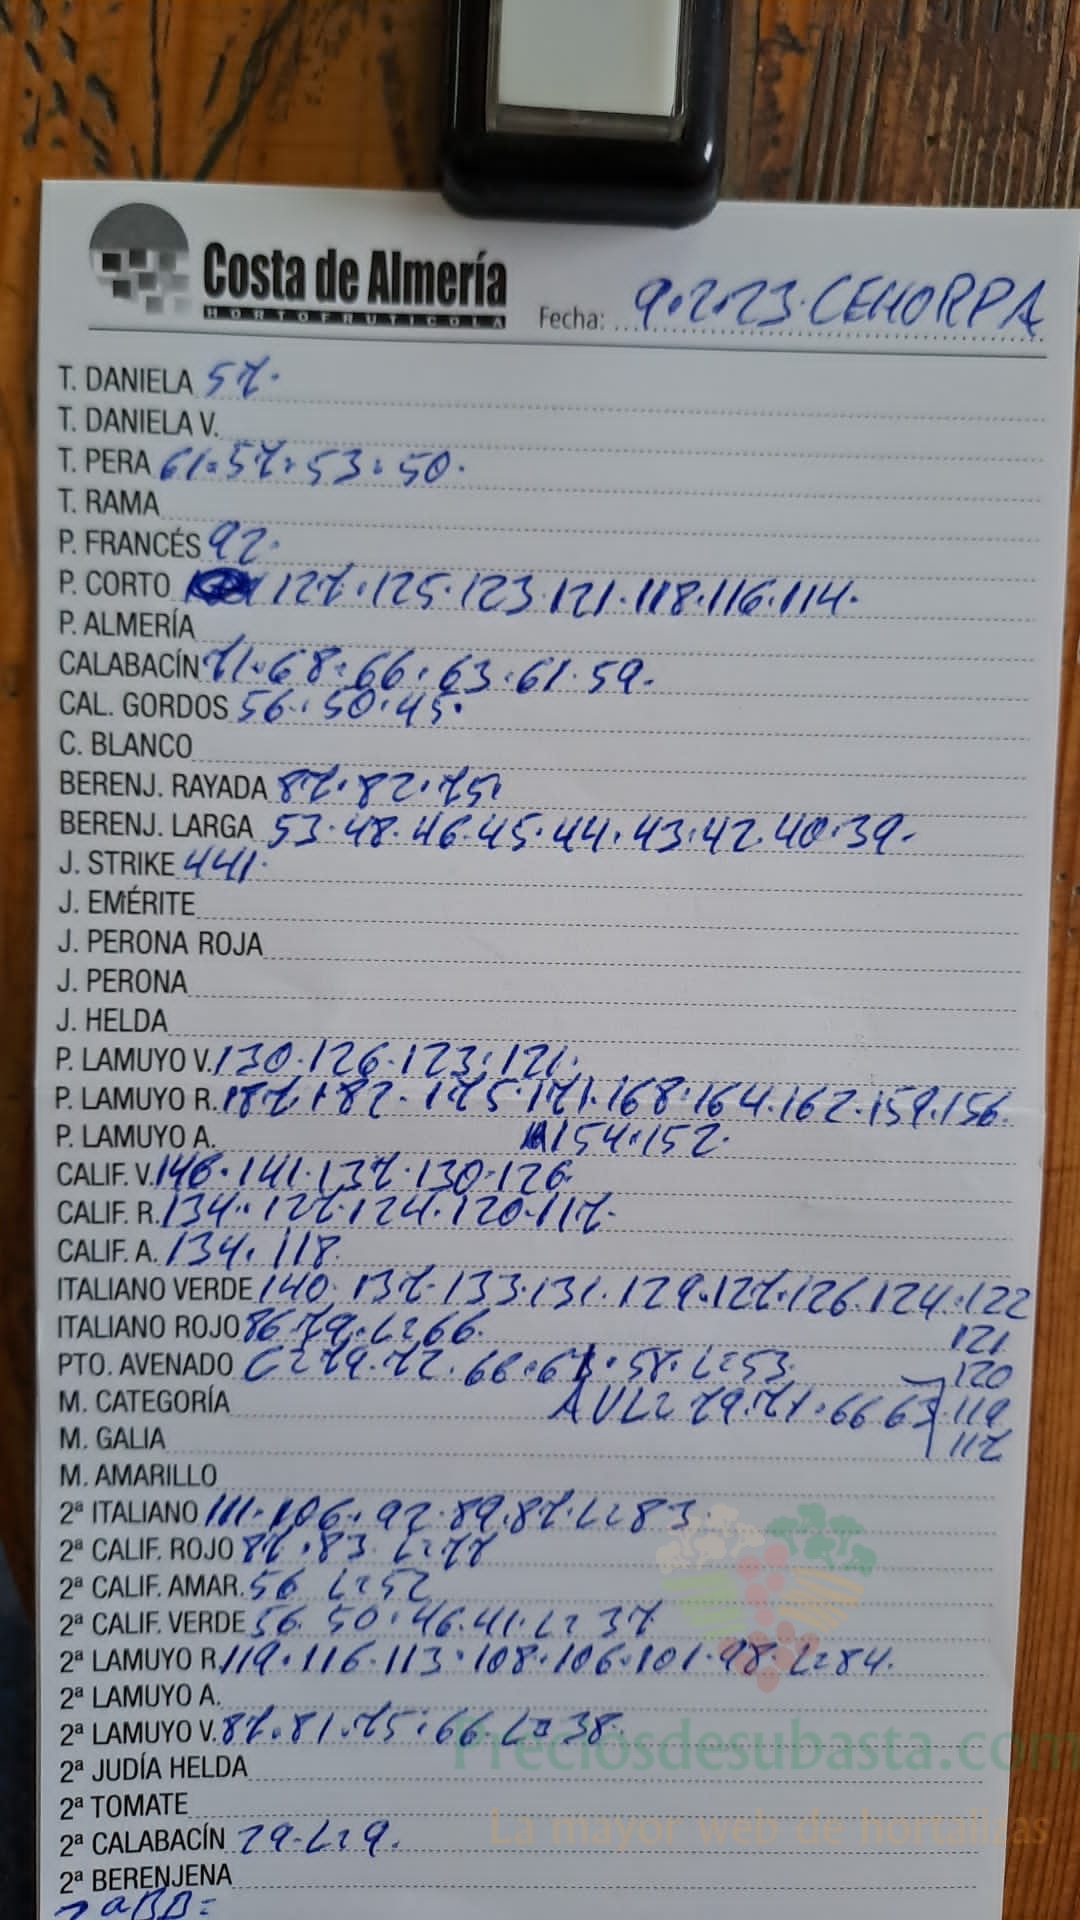 Costa de Almería
HORTOFRUTICOLA
Fecha: 9.2.23. CEHORPA
T. DANIELA 57.
T. DANIELA V.
T. PERA 61.57.53.50.
T. RAMA
P. FRANCÉS 92.
P. CORTO 127.125.123.121.118.116.114.
P. ALMERÍA
CALABACÍN 71.68.66.63.61.59.
CAL. GORDOS 56.50.45.
C. BLANCO
BERENJ. RAYADA 87.82.75.
BERENJ. LARGA 53.48.46.45.44.43.42.40.39.
J. STRIKE 441.
J. EMÉRITE
J. PERONA ROJA
J. PERONA
J. HELDA
P. LAMUYO V. 130.126.123.121.
P. LAMUYO R. 187.182.175.171.168.164.162.159.156.
P. LAMUYO A. 154.152.
CALIF. V. 146.141.137.130.126.
CALIF. R. 134.127.124.120.117.
CALIF. A. 134.118.
ITALIANO VERDE 140.137.133.131.129.127.126.124.122
ITALIANO ROJO 86.79.L=66. 121
PTO. AVENADO C=79.72.66.61.58.L=53. 120
M. CATEGORÍA AVL=79.71.66 63 119
M. GALIA 117
M. AMARILLO
2ª ITALIANO 111.106.92.89.87.L=83.
2ª CALIF. ROJO 87.83. L=77
2ª CALIF. AMAR. 56 L=52
2ª CALIF. VERDE 56.50.46.41.L=37
2ª LAMUYO R. 119.116.113.108.106.101.98.L=84.
2ª LAMUYO A.
2ª LAMUYO V. 87.81.75.66.L=38.
Preciosdesubasta.com
2ª JUDÍA HELDA
2ª TOMATE
La mayor web de hortalizas
2ª CALABACÍN 29.L=9.
2ª BERENJENA
2ªBB=